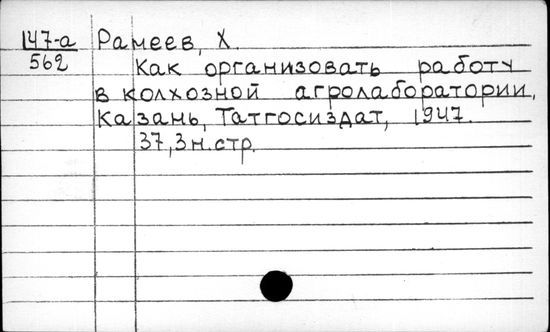 147-а Рамеев, Х.
562
Как организовать работу
в колхозной агролаборатории.
Казань, Татгосиздат, 1947.
37,3н.стр.